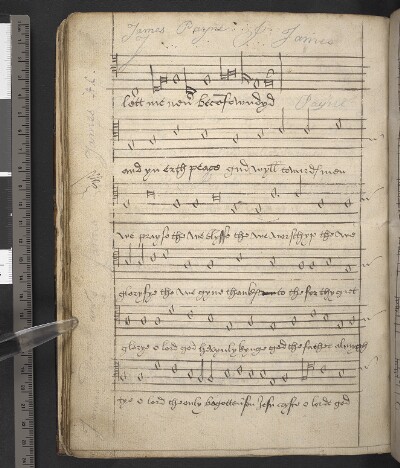 James Payne James
Payne
lett me nev becōfowndyd
and yn erth peace gud wyll towards men
we prayse the we blysse the we worshyp the we
gloryfye the we gyve thanks to the for thy gret
glorye o lord god hevynly kynge god the father almygh
tye o lord the only begotten son Jesu cryste o lorde god
James